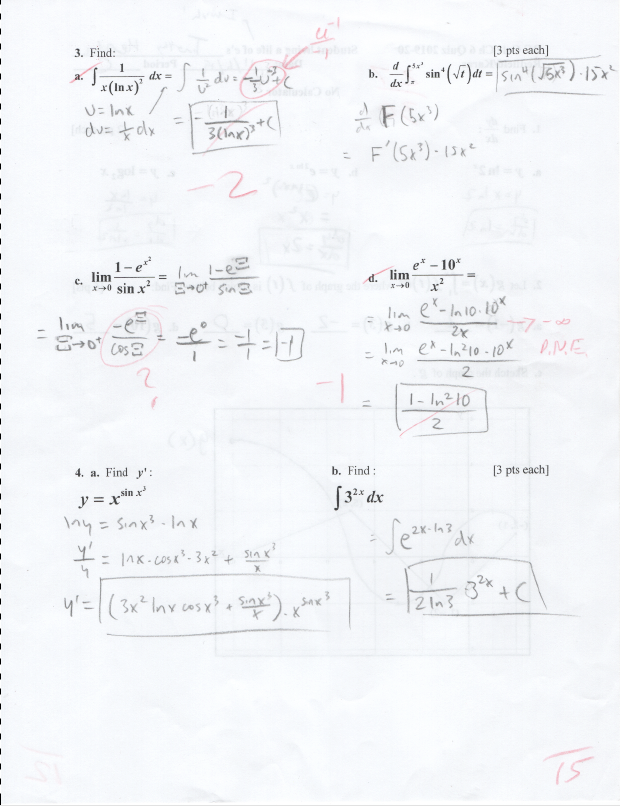 3. Find: [3 pts each]
u^-1/1
a. ∫ 1/(x(ln x)^2) dx = ∫ 1/U^2 du = -1/3 U^-3 + C
U = lnx
du = 1/x dx
= -1/(3(lnx)^3) + C
-2
b. d/dx ∫_π^{5x^3} sin^4(√t) dt = sin^4(√5x^3) · 15x^2
d/dx F(5x^3)
= F'(5x^3) · 15x^2
c. lim x→0 (1 - e^{x^2})/(sin x^2) = lim Ξ→0+ (1 - e^Ξ)/(sin Ξ)
= lim Ξ→0+ (-e^Ξ)/(cos Ξ) = -e^0/1 = -1/1 = -1
?
d. lim x→0 (e^x - 10^x)/x^2 =
= lim x→0 (e^x - ln10·10^x)/2x → -∞
D.N.E.
= lim x→0 (e^x - ln^2 10·10^x)/2
-1
= (1 - ln^2 10)/2
4. a. Find y':
y = x^{sin x^3}
lny = sinx^3 · lnx
y'/y = lnx · cosx^3 · 3x^2 + sinx^3/x
y' = (3x^2 lnx cosx^3 + sinx^3/x) · x^{sinx^3}
b. Find : [3 pts each]
∫ 3^{2x} dx
= ∫ e^{2x·ln3} dx
= 1/(2ln3) · 3^{2x} + C
15